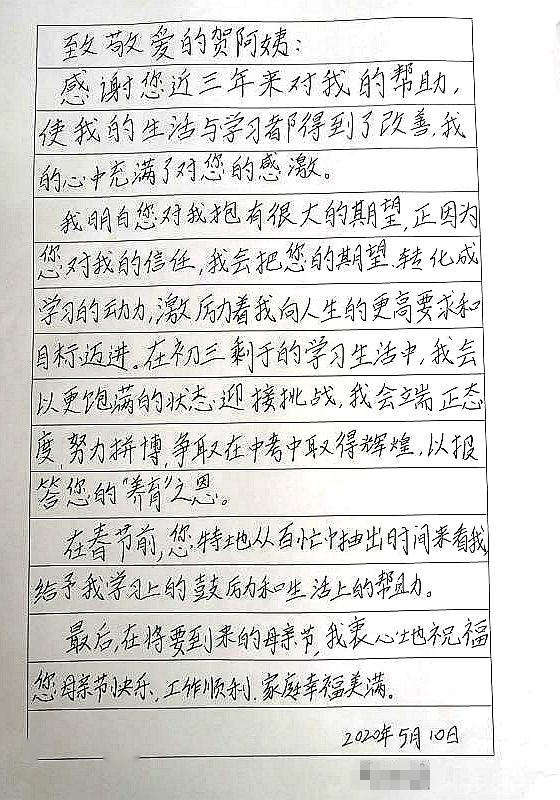 致敬爱的贺阿姨：
感谢您近三年来对我的帮助，
使我的生活与学习都得到了改善，我
的心中充满了对您的感激。
我明白您对我抱有很大的期望，正因为
您对我的信任，我会把您的期望转化成
学习的动力，激励着我向人生的更高要求和
目标迈进。在初三剩于的学习生活中，我会
以更饱满的状态迎接挑战，我会端正态
度，努力拼博，争取在中考中取得辉煌，以报
答您的“养育”之恩。
在春节前，您特地从百忙中抽出时间来看我，
给予我学习上的鼓励和生活上的帮助。
最后，在将要到来的母亲节，我衷心地祝福
您母亲节快乐，工作顺利，家庭幸福美满。
2020年5月10日